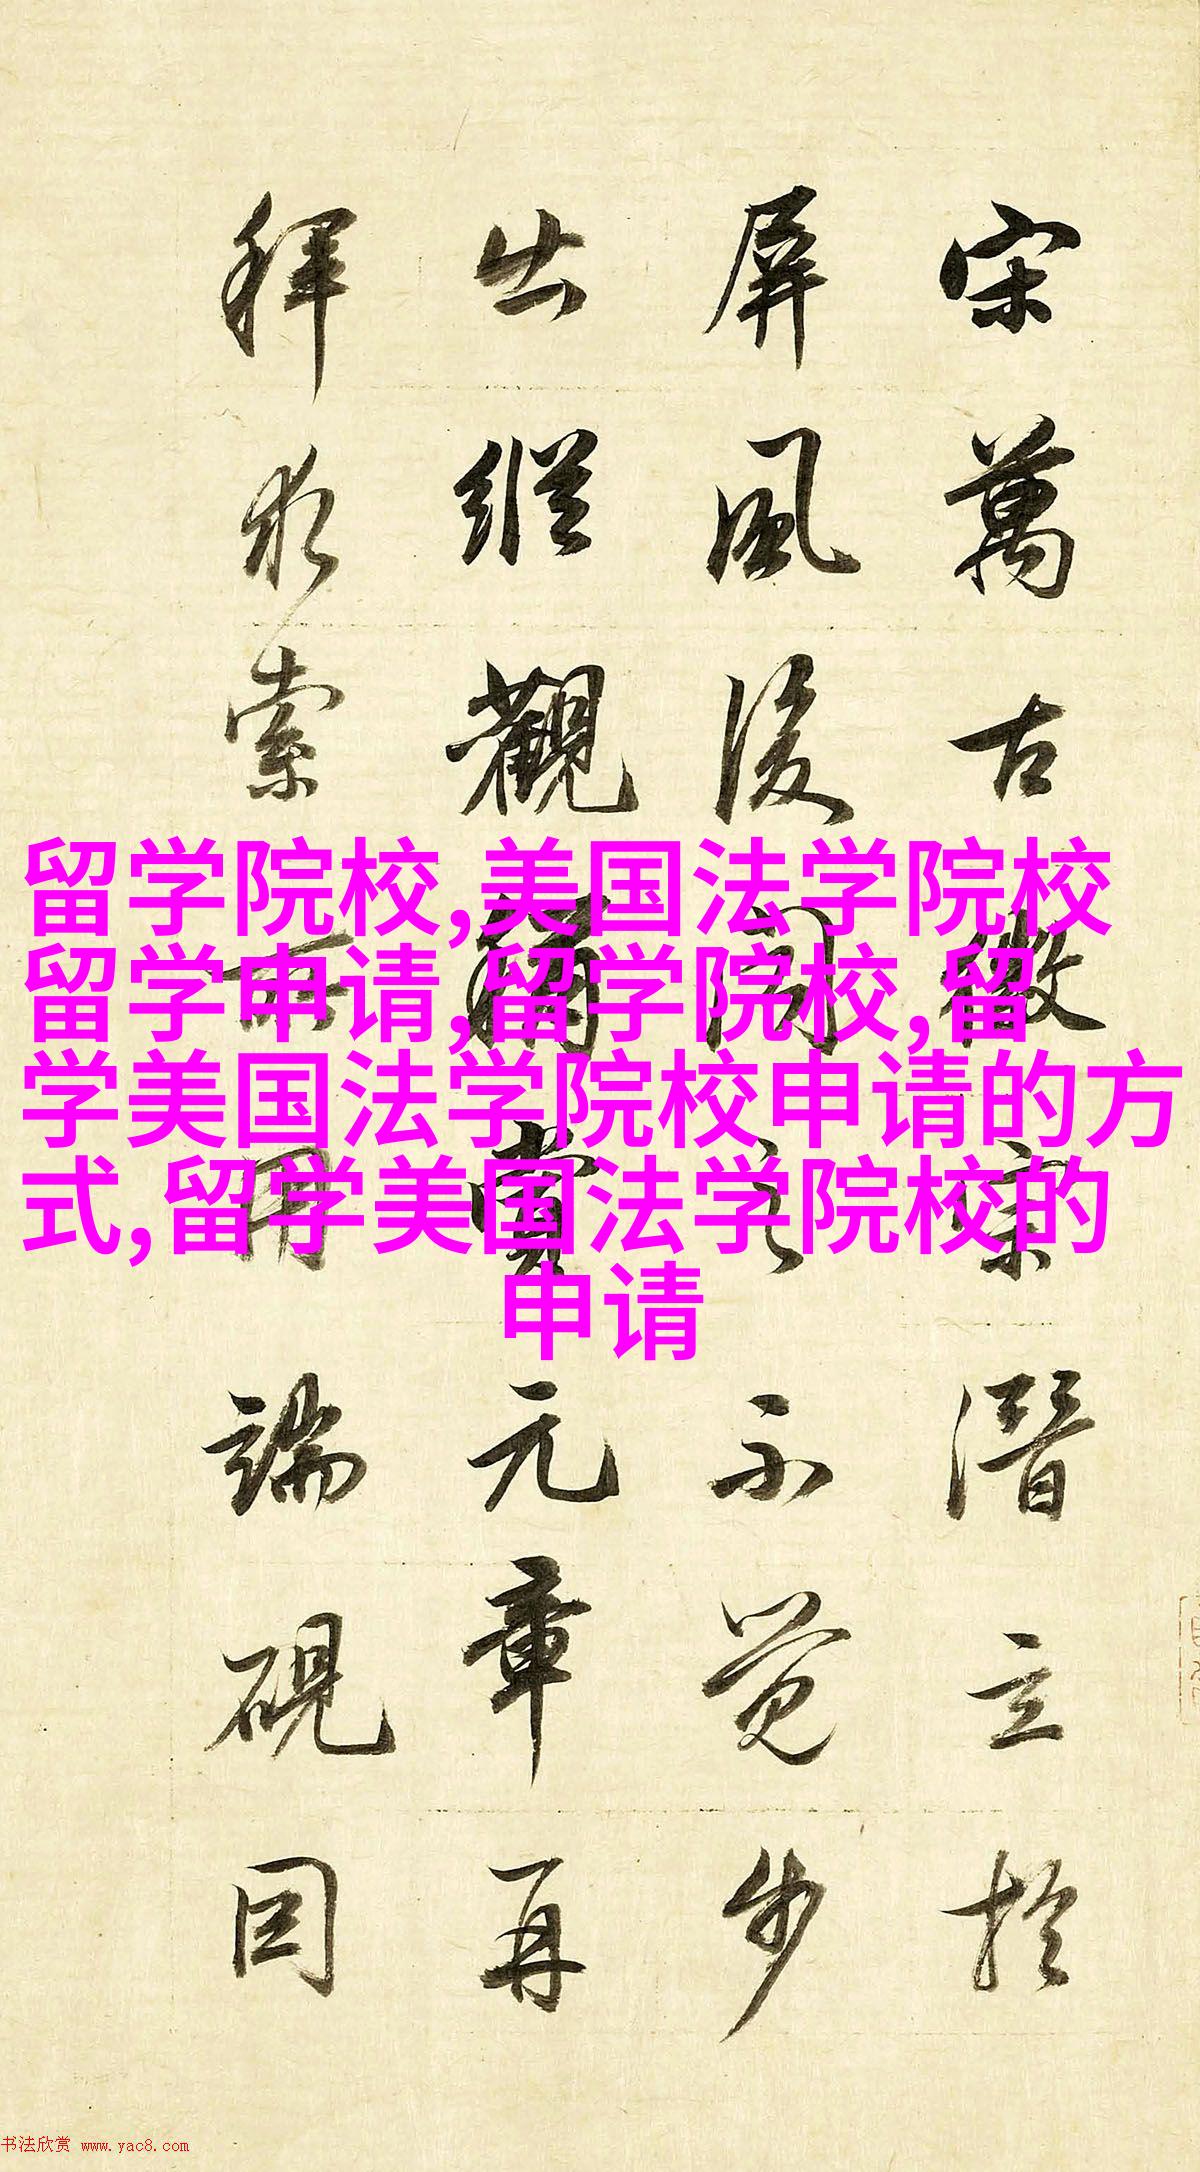 宋萬古徽宗潛立於
屏風後聞之不覺步
出縱觀稱賞元章再
拜求索所用端硯因
留学院校,美国法学院校
留学申请,留学院校,留
学美国法学院校申请的方
式,留学美国法学院校的
申请
书法欣赏 www.yac8.com